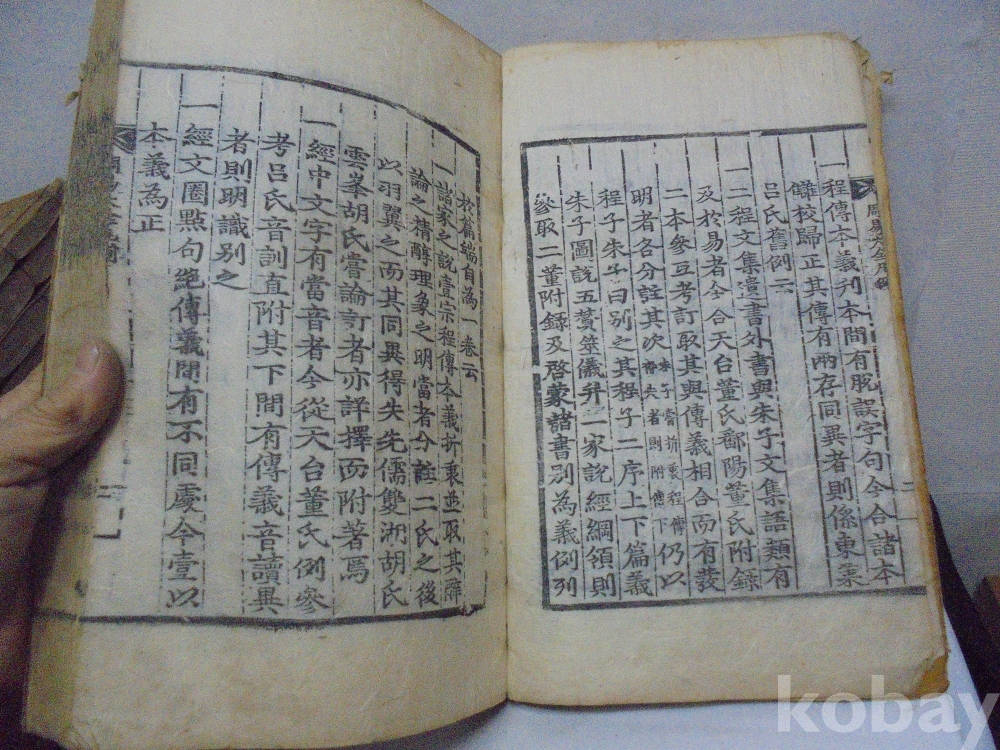 周易大全凡例
一程傳本義刊本間有脫誤字句今合諸本
讎校歸正其傳有兩存同異者則係東萊
呂氏舊例云
一二程文集遺書外書與朱子文集語類有
及於易者今合天台董氏鄱陽董氏附錄
二本參互考訂取其與傳義相合而有發
明者各分註其次朱子嘗折衷程傳得失者則附傳下仍以
程子朱子曰別之其程子二序上下篇義
朱子圖說五贊筮儀并二家說經綱領則
叅取二董附錄及啓蒙諸書別為義例列
二
於篇端自為一卷云
一諸家之說壹宗程傳本義折衷並取其辭
論之精醇理象之明當者分註二氏之後
以羽翼之而其同異得失先儒雙湖胡氏
雲峯胡氏嘗論訂者亦詳擇而附著焉
一經中文字有當音者今從天台董氏例叅
考呂氏音訓直附其下間有傳義音讀異
者則明識別之
一經文圈點句絶傳義間有不同處今壹以
本義為正
kobay